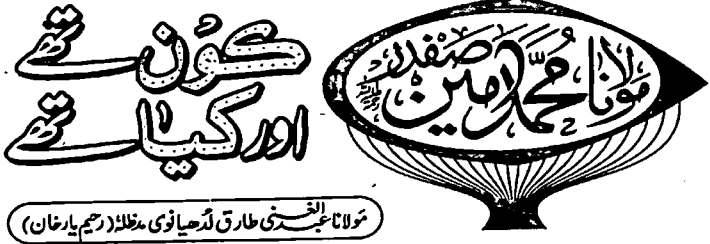 مولانا محمد امین صفدر
کون تھے
اور کیا تھے
مولانا عبدالغنی طارق لدھیانوی مدظلہٗ (رحیم یار خان)